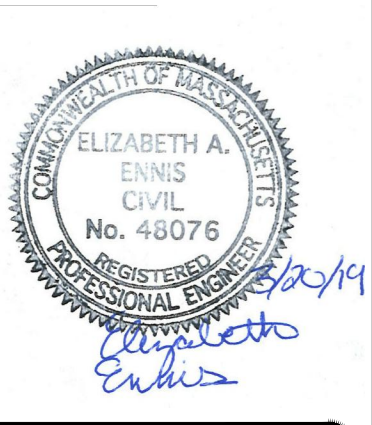 COMMONWEALTH OF MASSACHUSETTS
ELIZABETH A.
ENNIS
CIVIL
No. 48076
REGISTERED
PROFESSIONAL ENGINEER
3/20/19
Elizabeth
Ennis